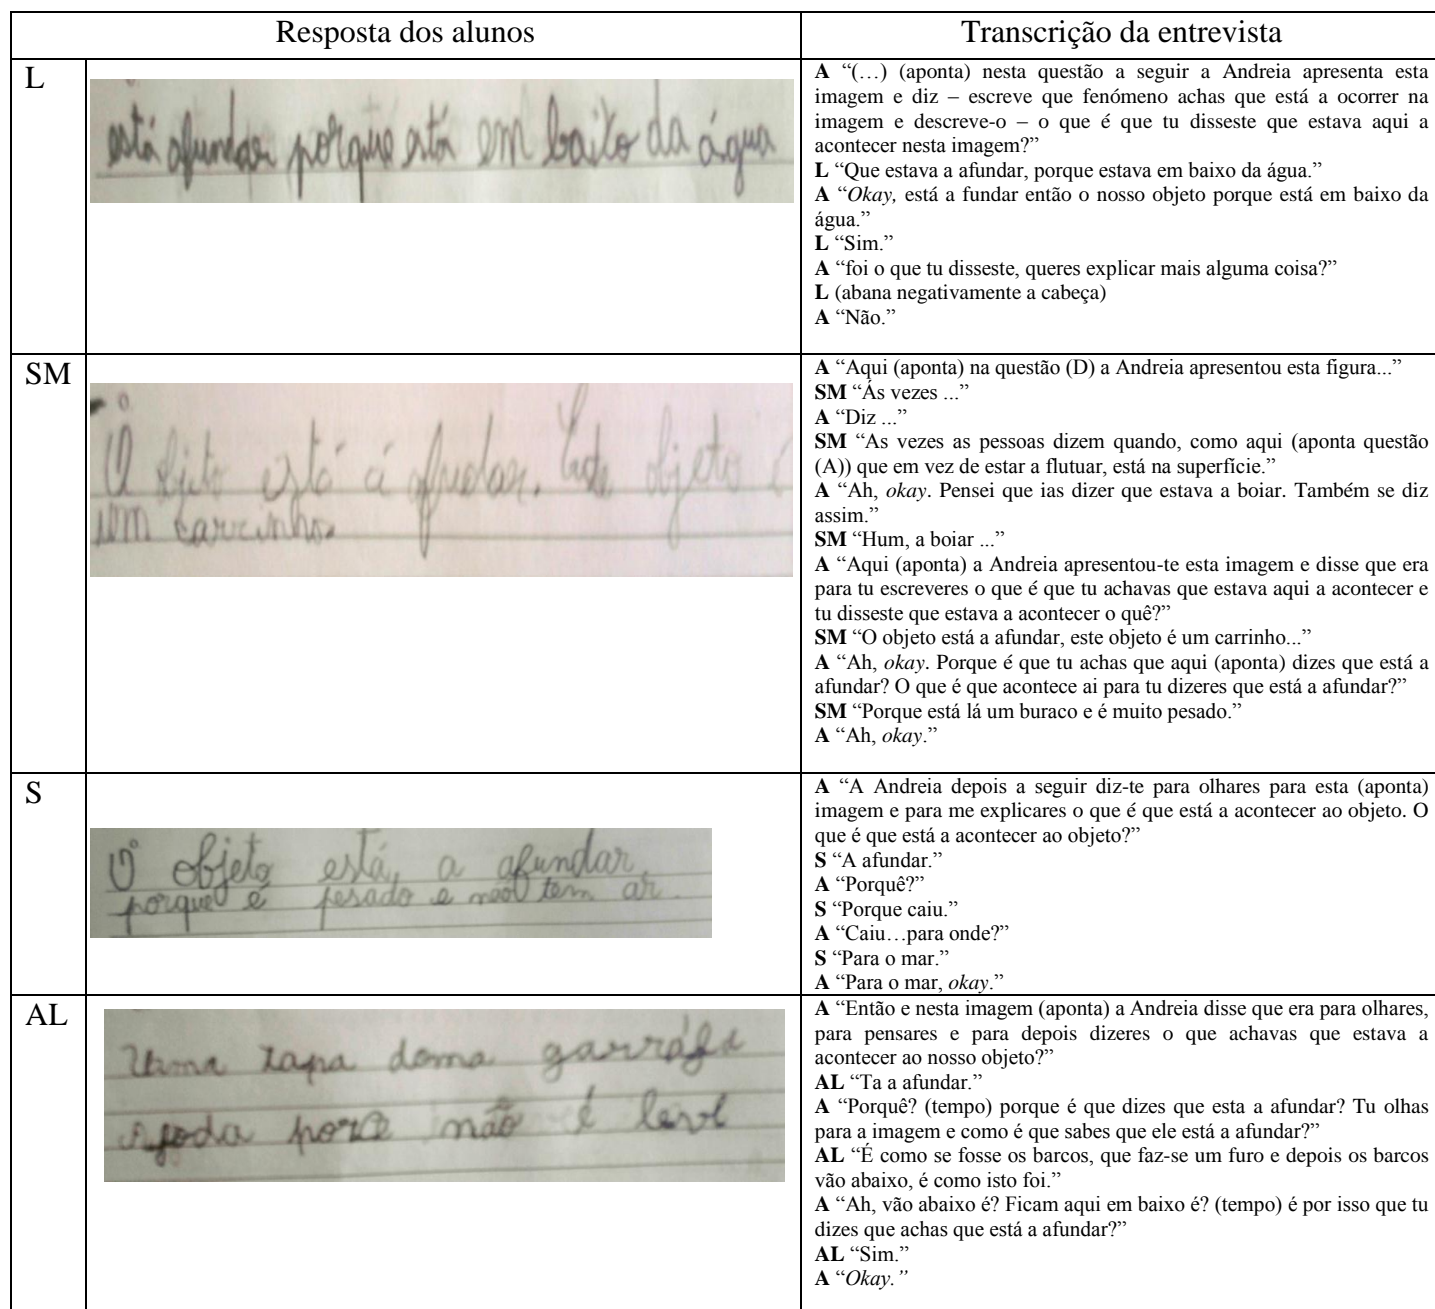 Resposta dos alunos
Transcrição da entrevista
L
está afundar porque está em baito da água
A “(…) (aponta) nesta questão a seguir a Andreia apresenta esta
imagem e diz – escreve que fenómeno achas que está a ocorrer na
imagem e descreve-o – o que é que tu disseste que estava aqui a
acontecer nesta imagem?”
L “Que estava a afundar, porque estava em baixo da água.”
A “Okay, está a fundar então o nosso objeto porque está em baixo da
água.”
L “Sim.”
A “foi o que tu disseste, queres explicar mais alguma coisa?”
L (abana negativamente a cabeça)
A “Não.”
SM
O ojeto está á afudar. Este objeto é
um carrinho.
A “Aqui (aponta) na questão (D) a Andreia apresentou esta figura...”
SM “Ás vezes ...”
A “Diz ...”
SM “As vezes as pessoas dizem quando, como aqui (aponta questão
(A)) que em vez de estar a flutuar, está na superfície.”
A “Ah, okay. Pensei que ias dizer que estava a boiar. Também se diz
assim.”
SM “Hum, a boiar ...”
A “Aqui (aponta) a Andreia apresentou-te esta imagem e disse que era
para tu escreveres o que é que tu achavas que estava aqui a acontecer e
tu disseste que estava a acontecer o quê?”
SM “O objeto está a afundar, este objeto é um carrinho...”
A “Ah, okay. Porque é que tu achas que aqui (aponta) dizes que está a
afundar? O que é que acontece ai para tu dizeres que está a afundar?”
SM “Porque está lá um buraco e é muito pesado.”
A “Ah, okay.”
S
O objeto está a afundar
porque é pesado e não tem ar.
A “A Andreia depois a seguir diz-te para olhares para esta (aponta)
imagem e para me explicares o que é que está a acontecer ao objeto. O
que é que está a acontecer ao objeto?”
S “A afundar.”
A “Porquê?”
S “Porque caiu.”
A “Caiu…para onde?”
S “Para o mar.”
A “Para o mar, okay.”
AL
Uma tapa doma garráfa
não é leve
A “Então e nesta imagem (aponta) a Andreia disse que era para olhares,
para pensares e para depois dizeres o que achavas que estava a
acontecer ao nosso objeto?”
AL “Ta a afundar.”
A “Porquê? (tempo) porque é que dizes que esta a afundar? Tu olhas
para a imagem e como é que sabes que ele está a afundar?”
AL “É como se fosse os barcos, que faz-se um furo e depois os barcos
vão abaixo, é como isto foi.”
A “Ah, vão abaixo é? Ficam aqui em baixo é? (tempo) é por isso que tu
dizes que achas que está a afundar?”
AL “Sim.”
A “Okay.”